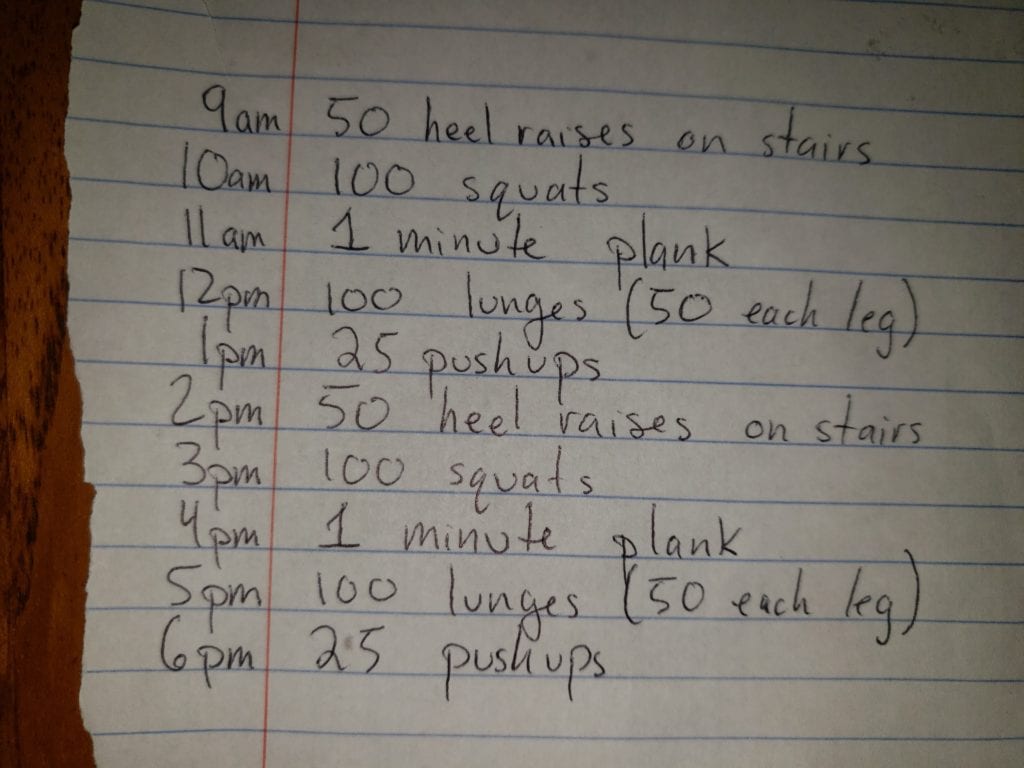 9am 50 heel raises on stairs
10am 100 squats
11am 1 minute plank
12pm 100 lunges (50 each leg)
1pm 25 pushups
2pm 50 heel raises on stairs
3pm 100 squats
4pm 1 minute plank
5pm 100 lunges (50 each leg)
6pm 25 pushups